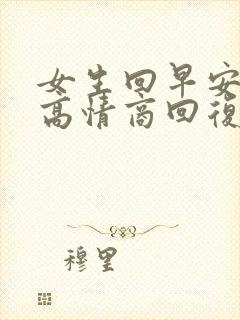 女生回早安
高情商回復
穆里